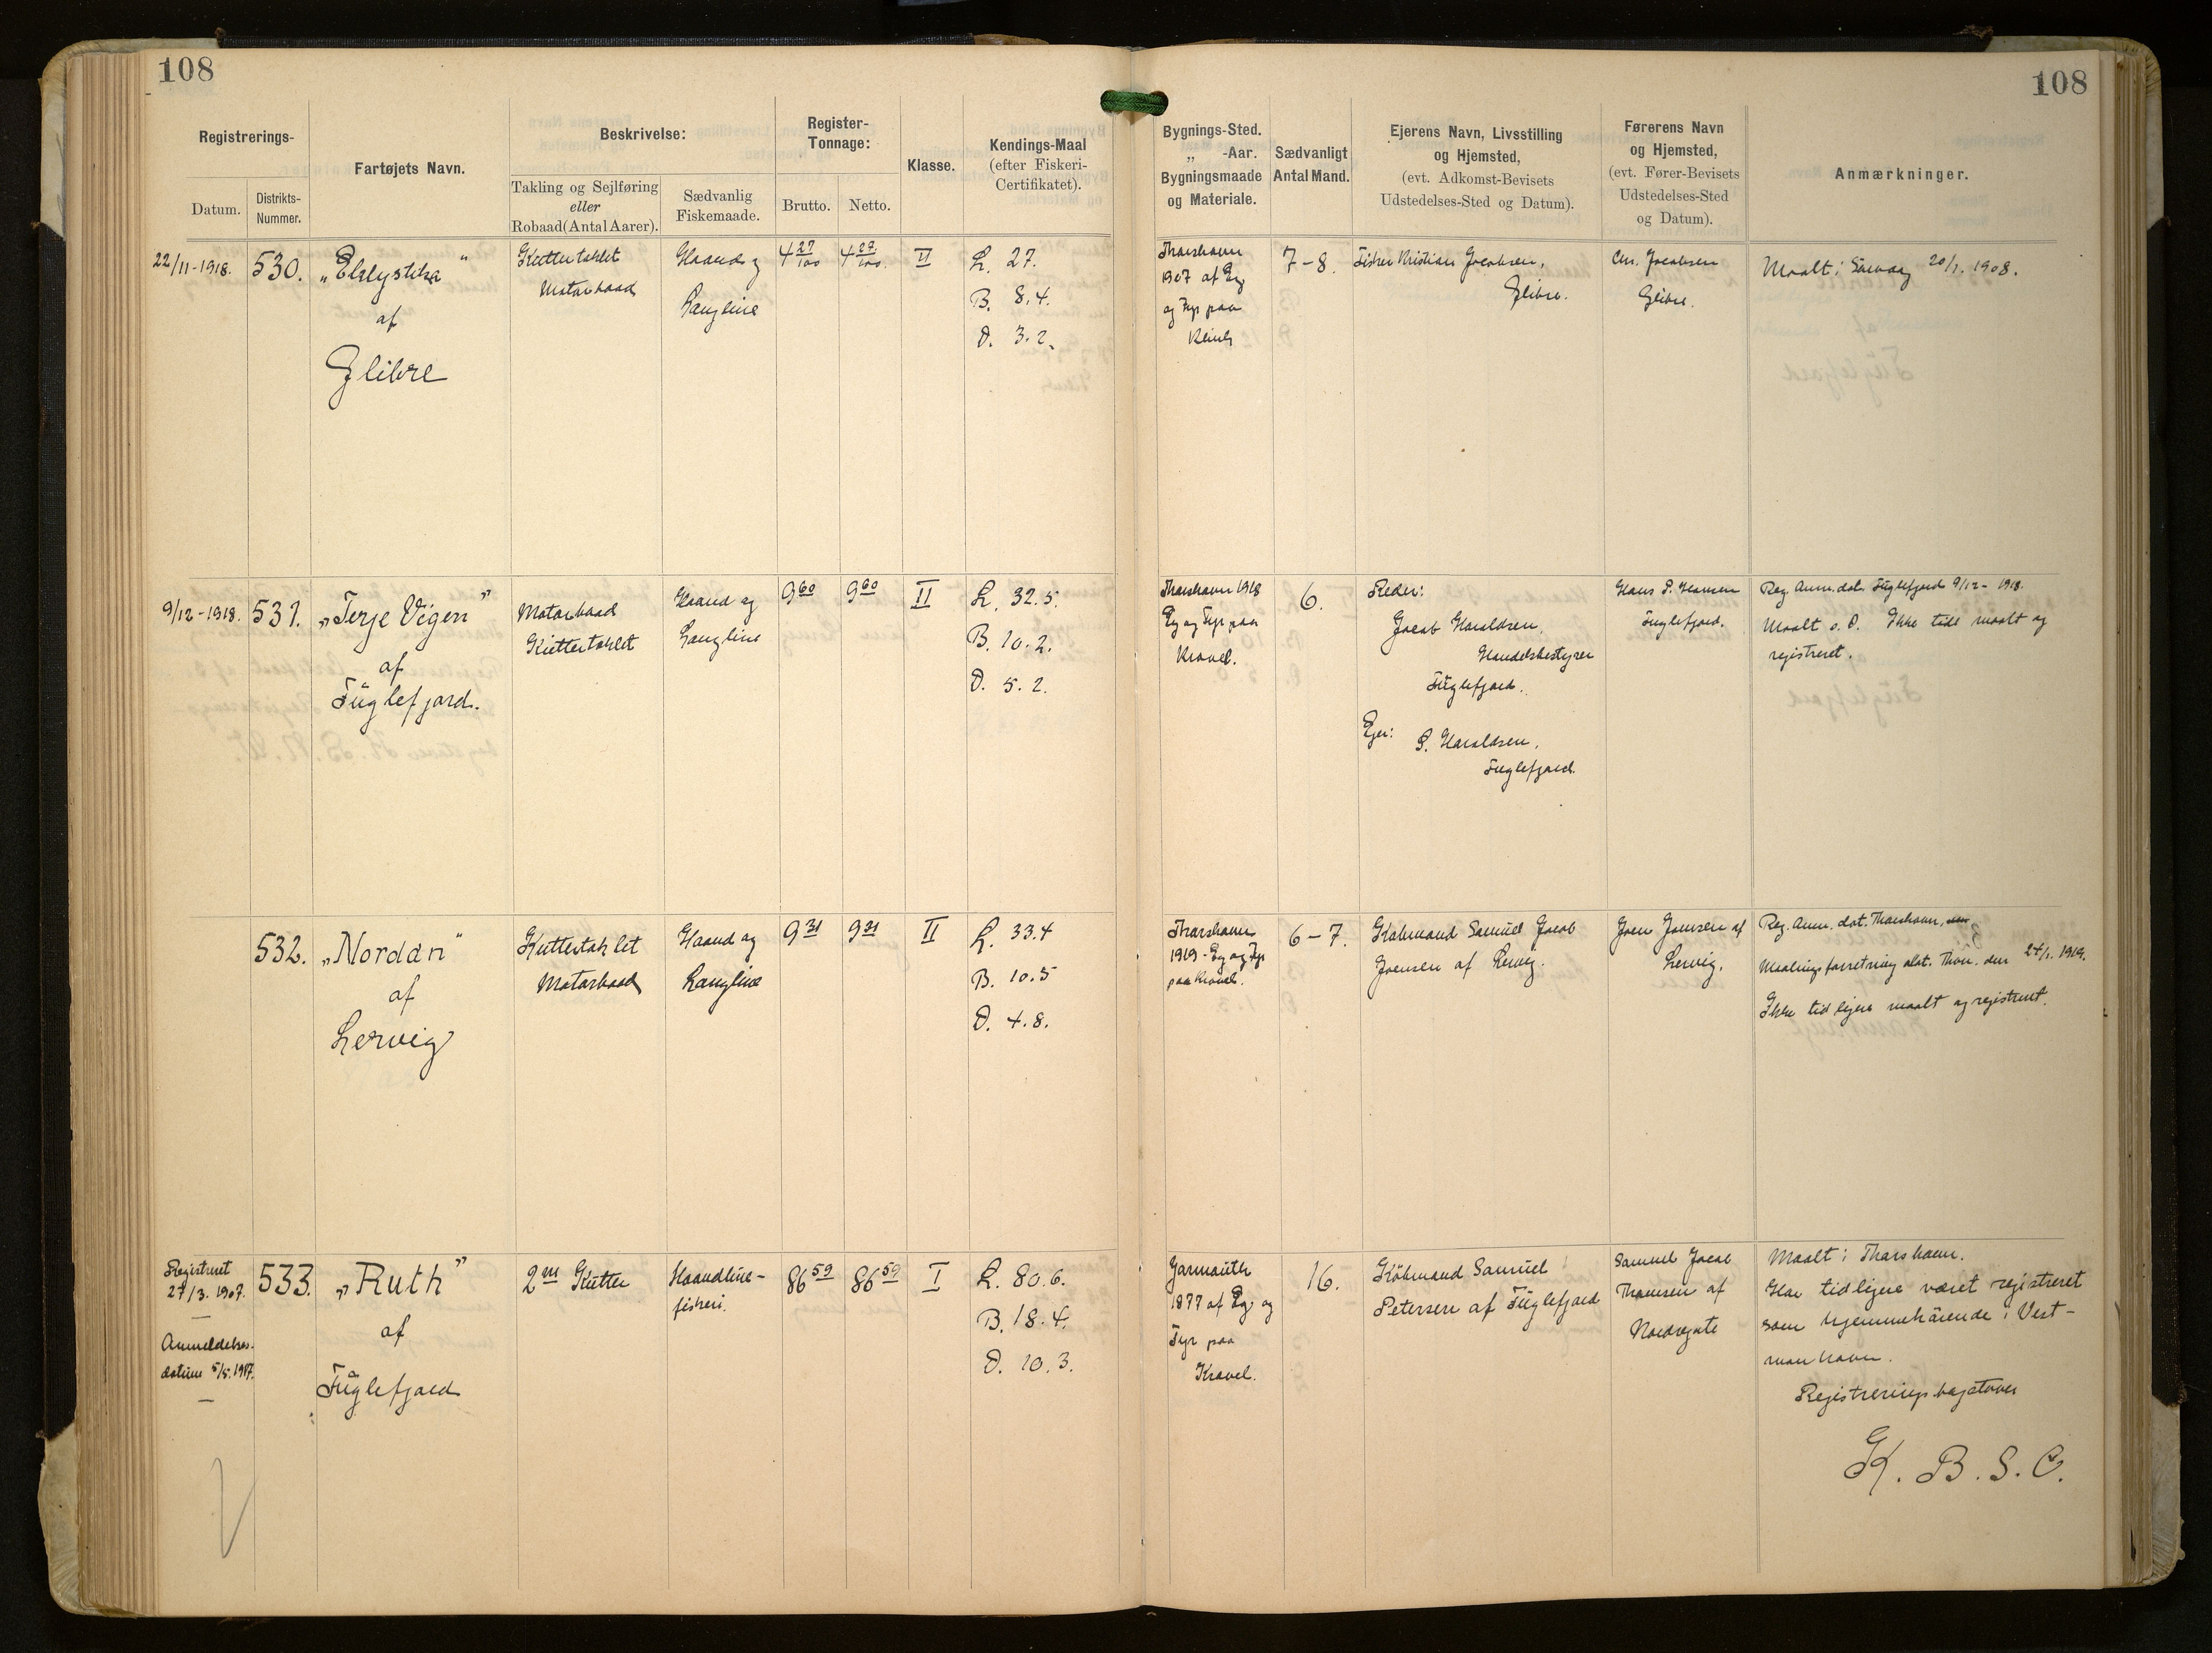 108
108
Registrerings-
Datum.
Distrikts-
Nummer.
Fartøjets Navn.
Beskrivelse:
Takling og Sejlføring
eller
Robaad (Antal Aarer).
Sædvanlig
Fiskemaade.
Register-
Tonnage:
Brutto.
Netto.
Klasse.
Kendings-Maal
(efter Fiskeri-
Certifikatet).
Bygnings-Sted.
„ -Aar.
Bygningsmaade
og Materiale.
Sædvanligt
Antal Mand.
Ejerens Navn, Livsstilling
og Hjemsted,
(evt. Adkomst-Bevisets
Udstedelses-Sted og Datum).
Førerens Navn
og Hjemsted,
(evt. Fører-Bevisets
Udstedelses-Sted
og Datum).
Anmærkninger.
22/11-1918.
530.
af
Glibre
Kuttertaklet
Motorbaad
Haand og
Langline
4 27/100
4 27/100
II
L. 27.
B. 8.4.
D. 3.2.
Thorshavn
1907 af Eg
og Fyr paa
Klink
7-8.
Fisker Kristian Jacobsen,
Glibre.
Chr. Jacobsen
Glibre.
Maalt i Sörvaag 20/1. 1908.
9/12-1918.
531.
„Terje Vigen"
af
Fuglefjord.
Motorbaad
Kuttertaklet
Haand og
Langline
9 60
9 60
II
L. 32.5.
B. 10.2.
D. 5.2.
Thorshavn 1918
Eg og Fyr paa
Kravel.
6.
Reder:
Jacob Haraldsen,
Handelsbestyrer
Fuglefjord.
Ejer:
S. Haraldsen,
Fuglefjord.
Hans P. Hansen
Fuglefjord.
Reg. Anm. dat. Fuglefjord 9/12- 1918.
Maalt s. D. Ikke tidl maalt og
registreret.
532.
„Nordan"
af
Lervig
Kuttertaklet
Motorbaad
Haand og
Langline
9 31
9 31
II
L. 33.4
B. 10.5
D. 4.8.
Thorshavn
1919 - Eg og Fyr
paa Kravel.
6-7.
Købmand Samuel Jacob
Joensen af Lervig.
Joen Joensen af
Lervig.
Reg. Anm. dat. Thorshavn, den
Maalingsforretning dat. Thvn. den 24/1. 1919.
Ikke tidligere maalt og registreret.
Registreret
27/3. 1907.
Anmeldelses-
datum 5/5. 1917.
533.
„Ruth"
af
Fuglefjord
2 m Kutter
Haandline-
fiskeri.
86 59
86 59
I
L. 80.6.
B. 18.4.
D. 10.3.
Yarmouth
1877 af Eg og
Fyr paa
Kravel.
16.
Köbmand Samuel
Petersen af Fuglefjord
Samuel Jacob
Thomsen af
Nordregøte
Maalt i Thorshavn.
Har tidligere været registreret
som hjemmehörende i Vest-
manhavn.
Registreringsbogstaver
K. B. S. C.